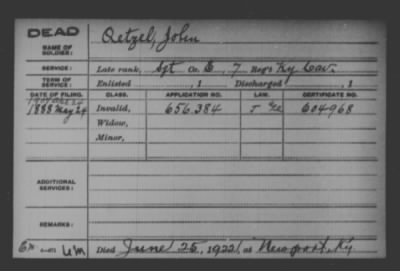 DEAD
NAME OF SOLDIER: Retzel, John
SERVICE: Late rank, Sgt Co. , 7 Reg't Ky Cav.
TERM OF SERVICE: Enlisted , 1 Discharged , 1
DATE OF FILING. CLASS. APPLICATION NO. LAW. CERTIFICATE NO.
1888 May 24 Invalid, 656.384 604968
Widow,
Minor,
ADDITIONAL SERVICES:
REMARKS:
Died June 25, 1922, at Newport, Ky